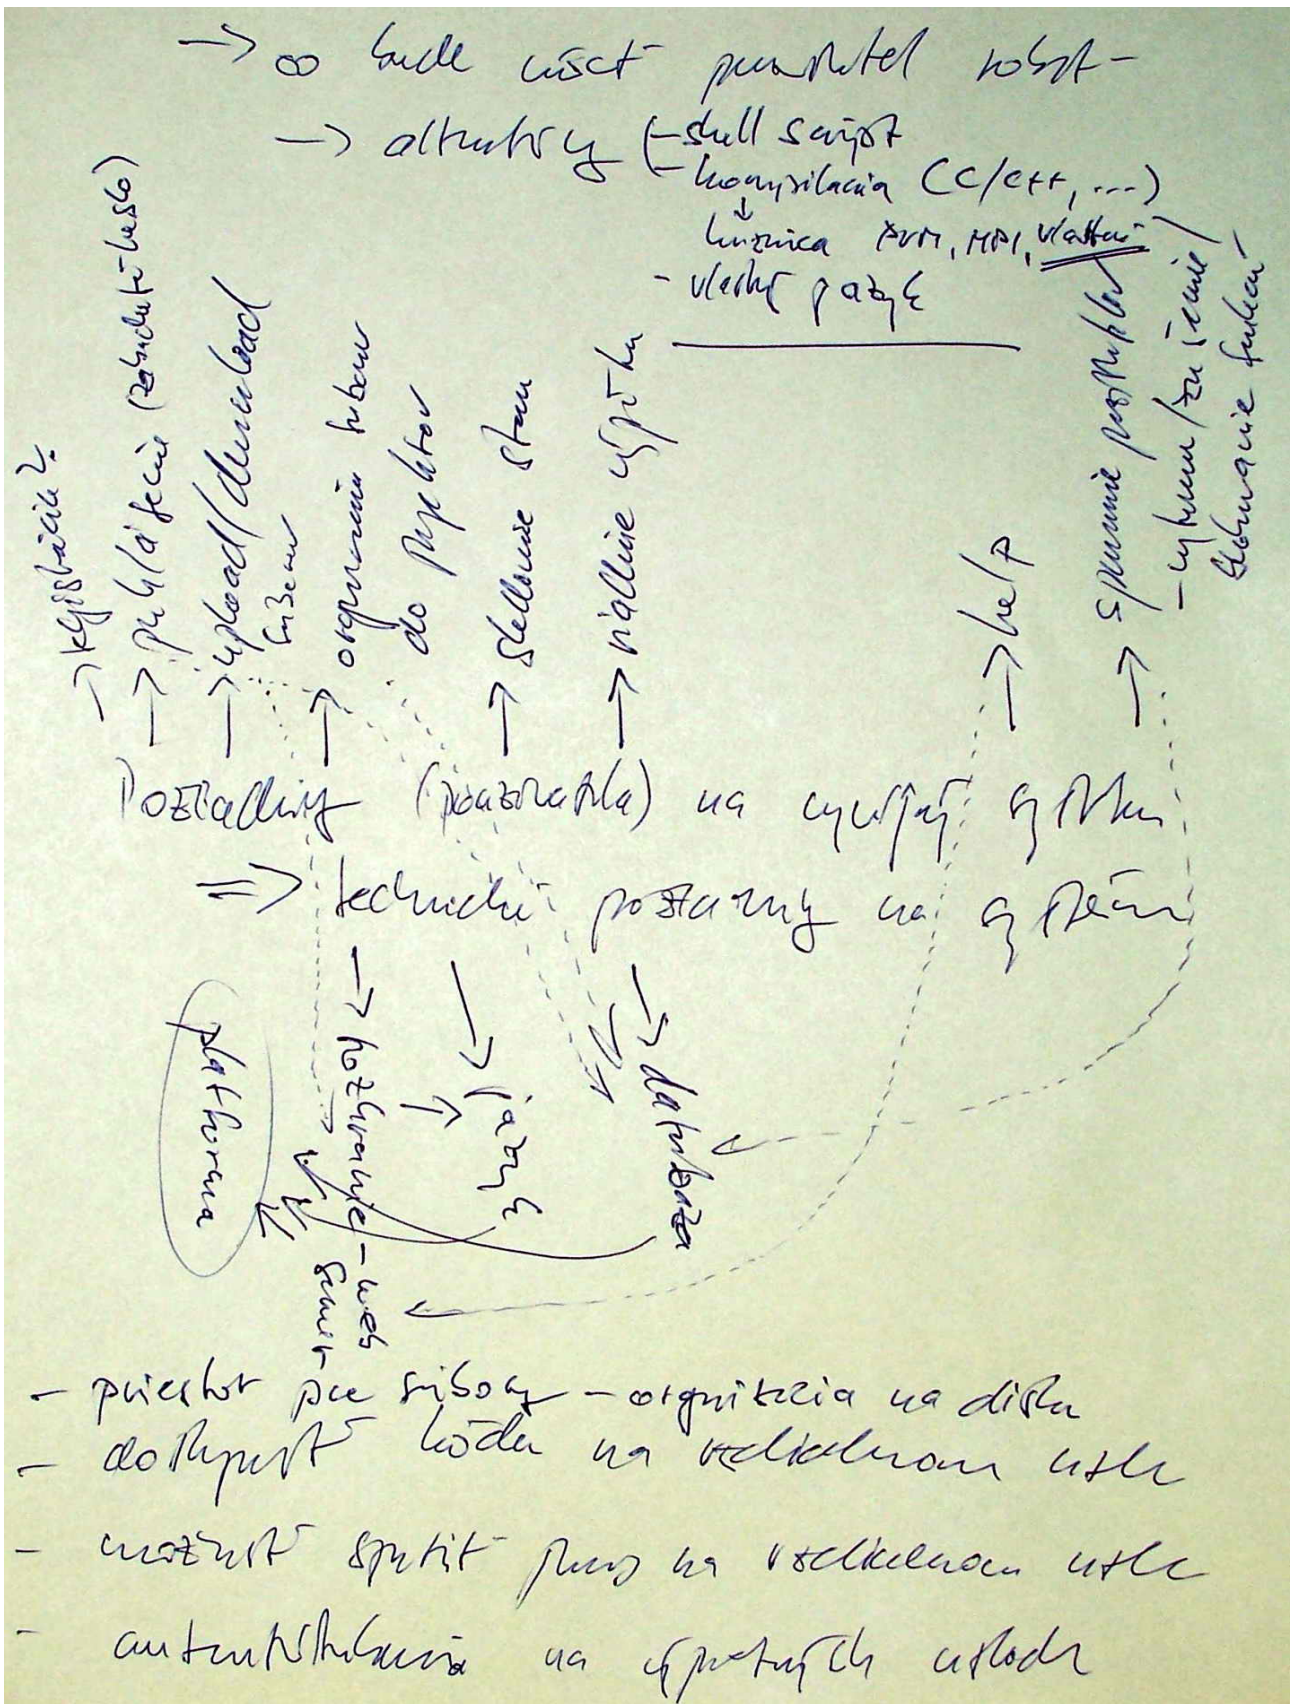 → čo bude môcť používateľ robiť
→ alternatívy - shell script
- kompilácia (C/C++, ...)
↓
knižnica PVM, MPI, vlastná
- vlastný jazyk
→ registrácia?
→ prihlásenie (zabudnuté heslo)
→ upload/download
súborov
→ organizácia súborov
do projektov
→ sledovanie stavu
→ riadenie výpočtu
→ help
→ spúšťanie
Požiadavky (používateľa) na vyvíjaný systém
⇒ technické požiadavky na systém
→ rozhranie - web
server
→ jazyk
→ databáza
platforma
- priestor pre súbory - organizácia na disku
- dostupnosť kódu na vzdialenom uzle
- možnosť spustiť proces na vzdialenom uzle
- autentifikácia na výpočtných uzloch